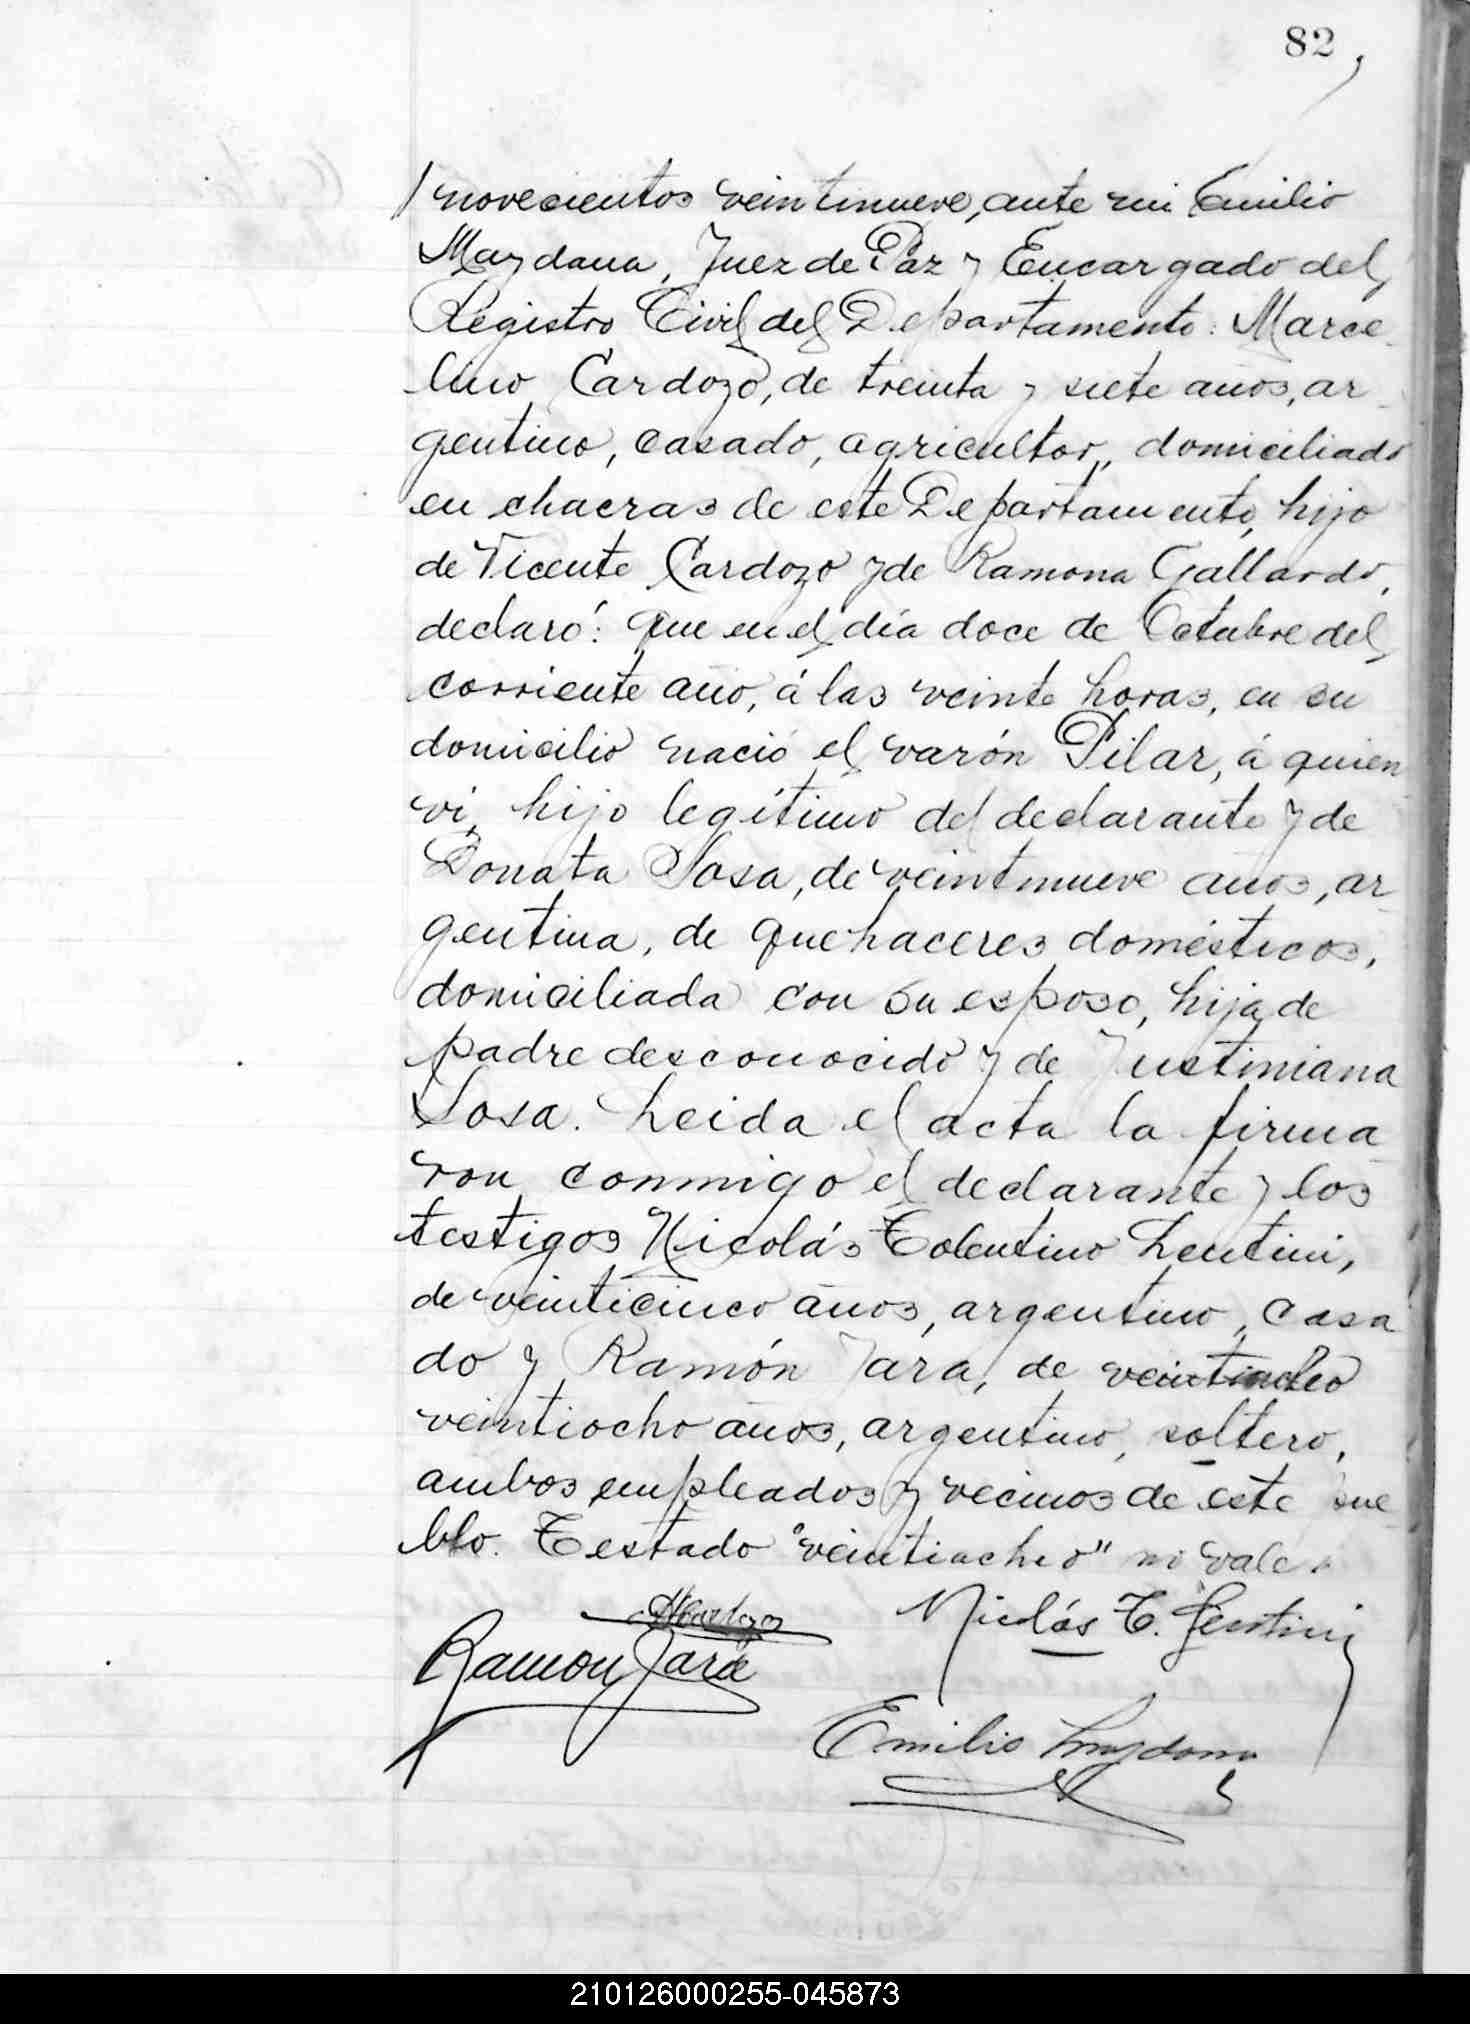 82
novecientos veintinueve, ante mi Emilio
Maydana, Juez de Paz y Encargado del
Registro Civil del Departamento: Marce-
lino Cardozo, de treinta y siete años, ar-
gentino, casado, agricultor, domiciliado
en chacras de este Departamento, hijo
de Vicente Cardozo y de Ramona Gallardo,
declaró: Que en el día doce de Octubre del
corriente año, á las veinte horas, en su
domicilio nació el varón Pilar, á quien
vi, hijo legítimo del declarante y de
Donata Sosa, de veintinueve años, ar-
gentina, de quehaceres domésticos,
domiciliada con su esposo, hija de
padre desconocido y de Justiniana
Sosa. Leida el acta la firma-
ron conmigo el declarante y los
testigos Nicolás Tolentino Lentini,
de veinticinco años, argentino, casa
do y Ramón Jara, de veintiacho
veintiocho años, argentino, soltero,
ambos empleados y vecinos de este pue-
blo. Testado "veintiacho" no vale.
MCardozo Nicolás T. Lentini
Ramon Jara
Emilio Maydana
210126000255-045873